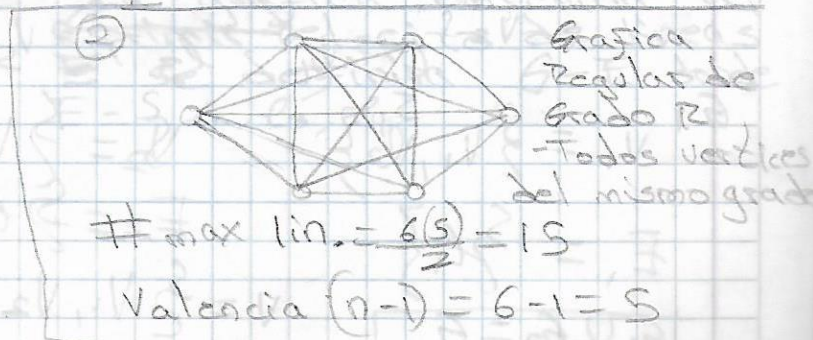 2
Grafica
Regular de
Grado R
-Todos vertices
del mismo grad
# max lin. = 6(5)/2 = 15
Valencia (n-1) = 6-1 = 5